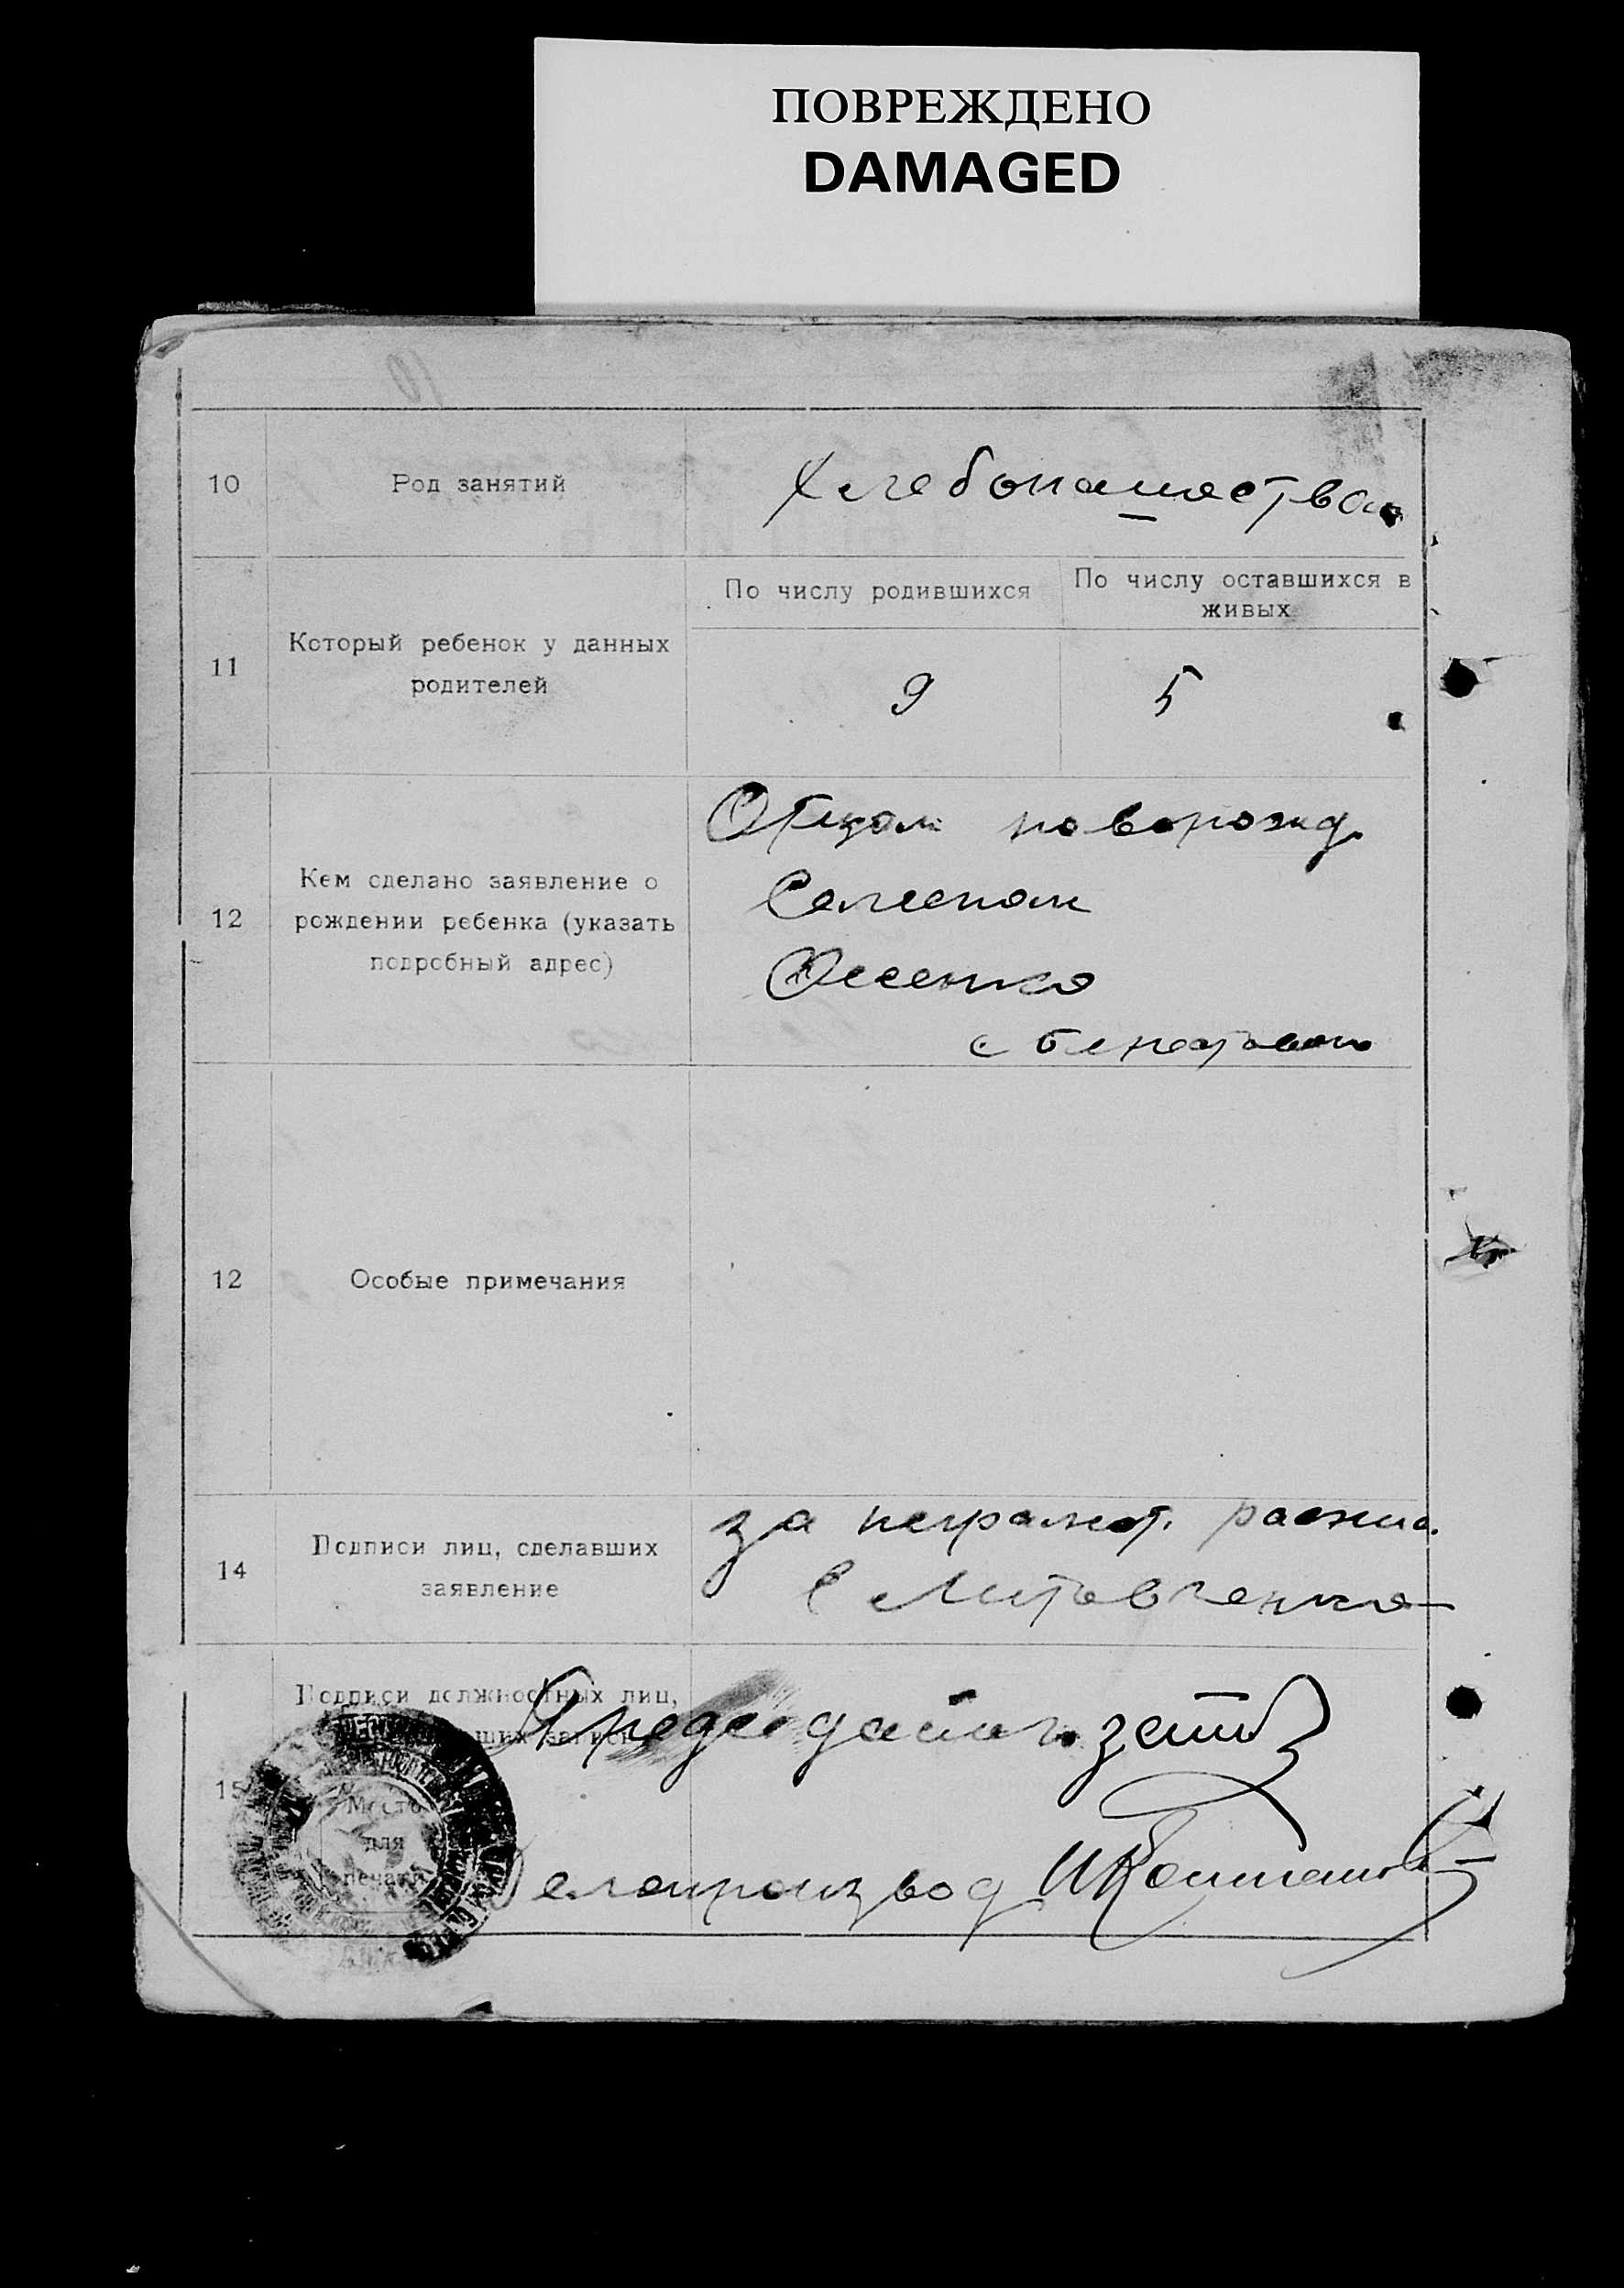 ПОВРЕЖДЕНО
DAMAGED
10
Род занятий
Хлебопашество
11
Который ребенок у данных
родителей
По числу родившихся
По числу оставшихся в
живых
9
5
12
Кем сделано заявление о
рождении ребенка (указать
подробный адрес)
Отцом новорожд.
Семеном
с
12
Особые примечания
14
Подписи лиц, сделавших
заявление
за неграмот.
Литовченко
15
Подписи должностных лиц,
Место
для
печати
Председатель
Делопроизвод